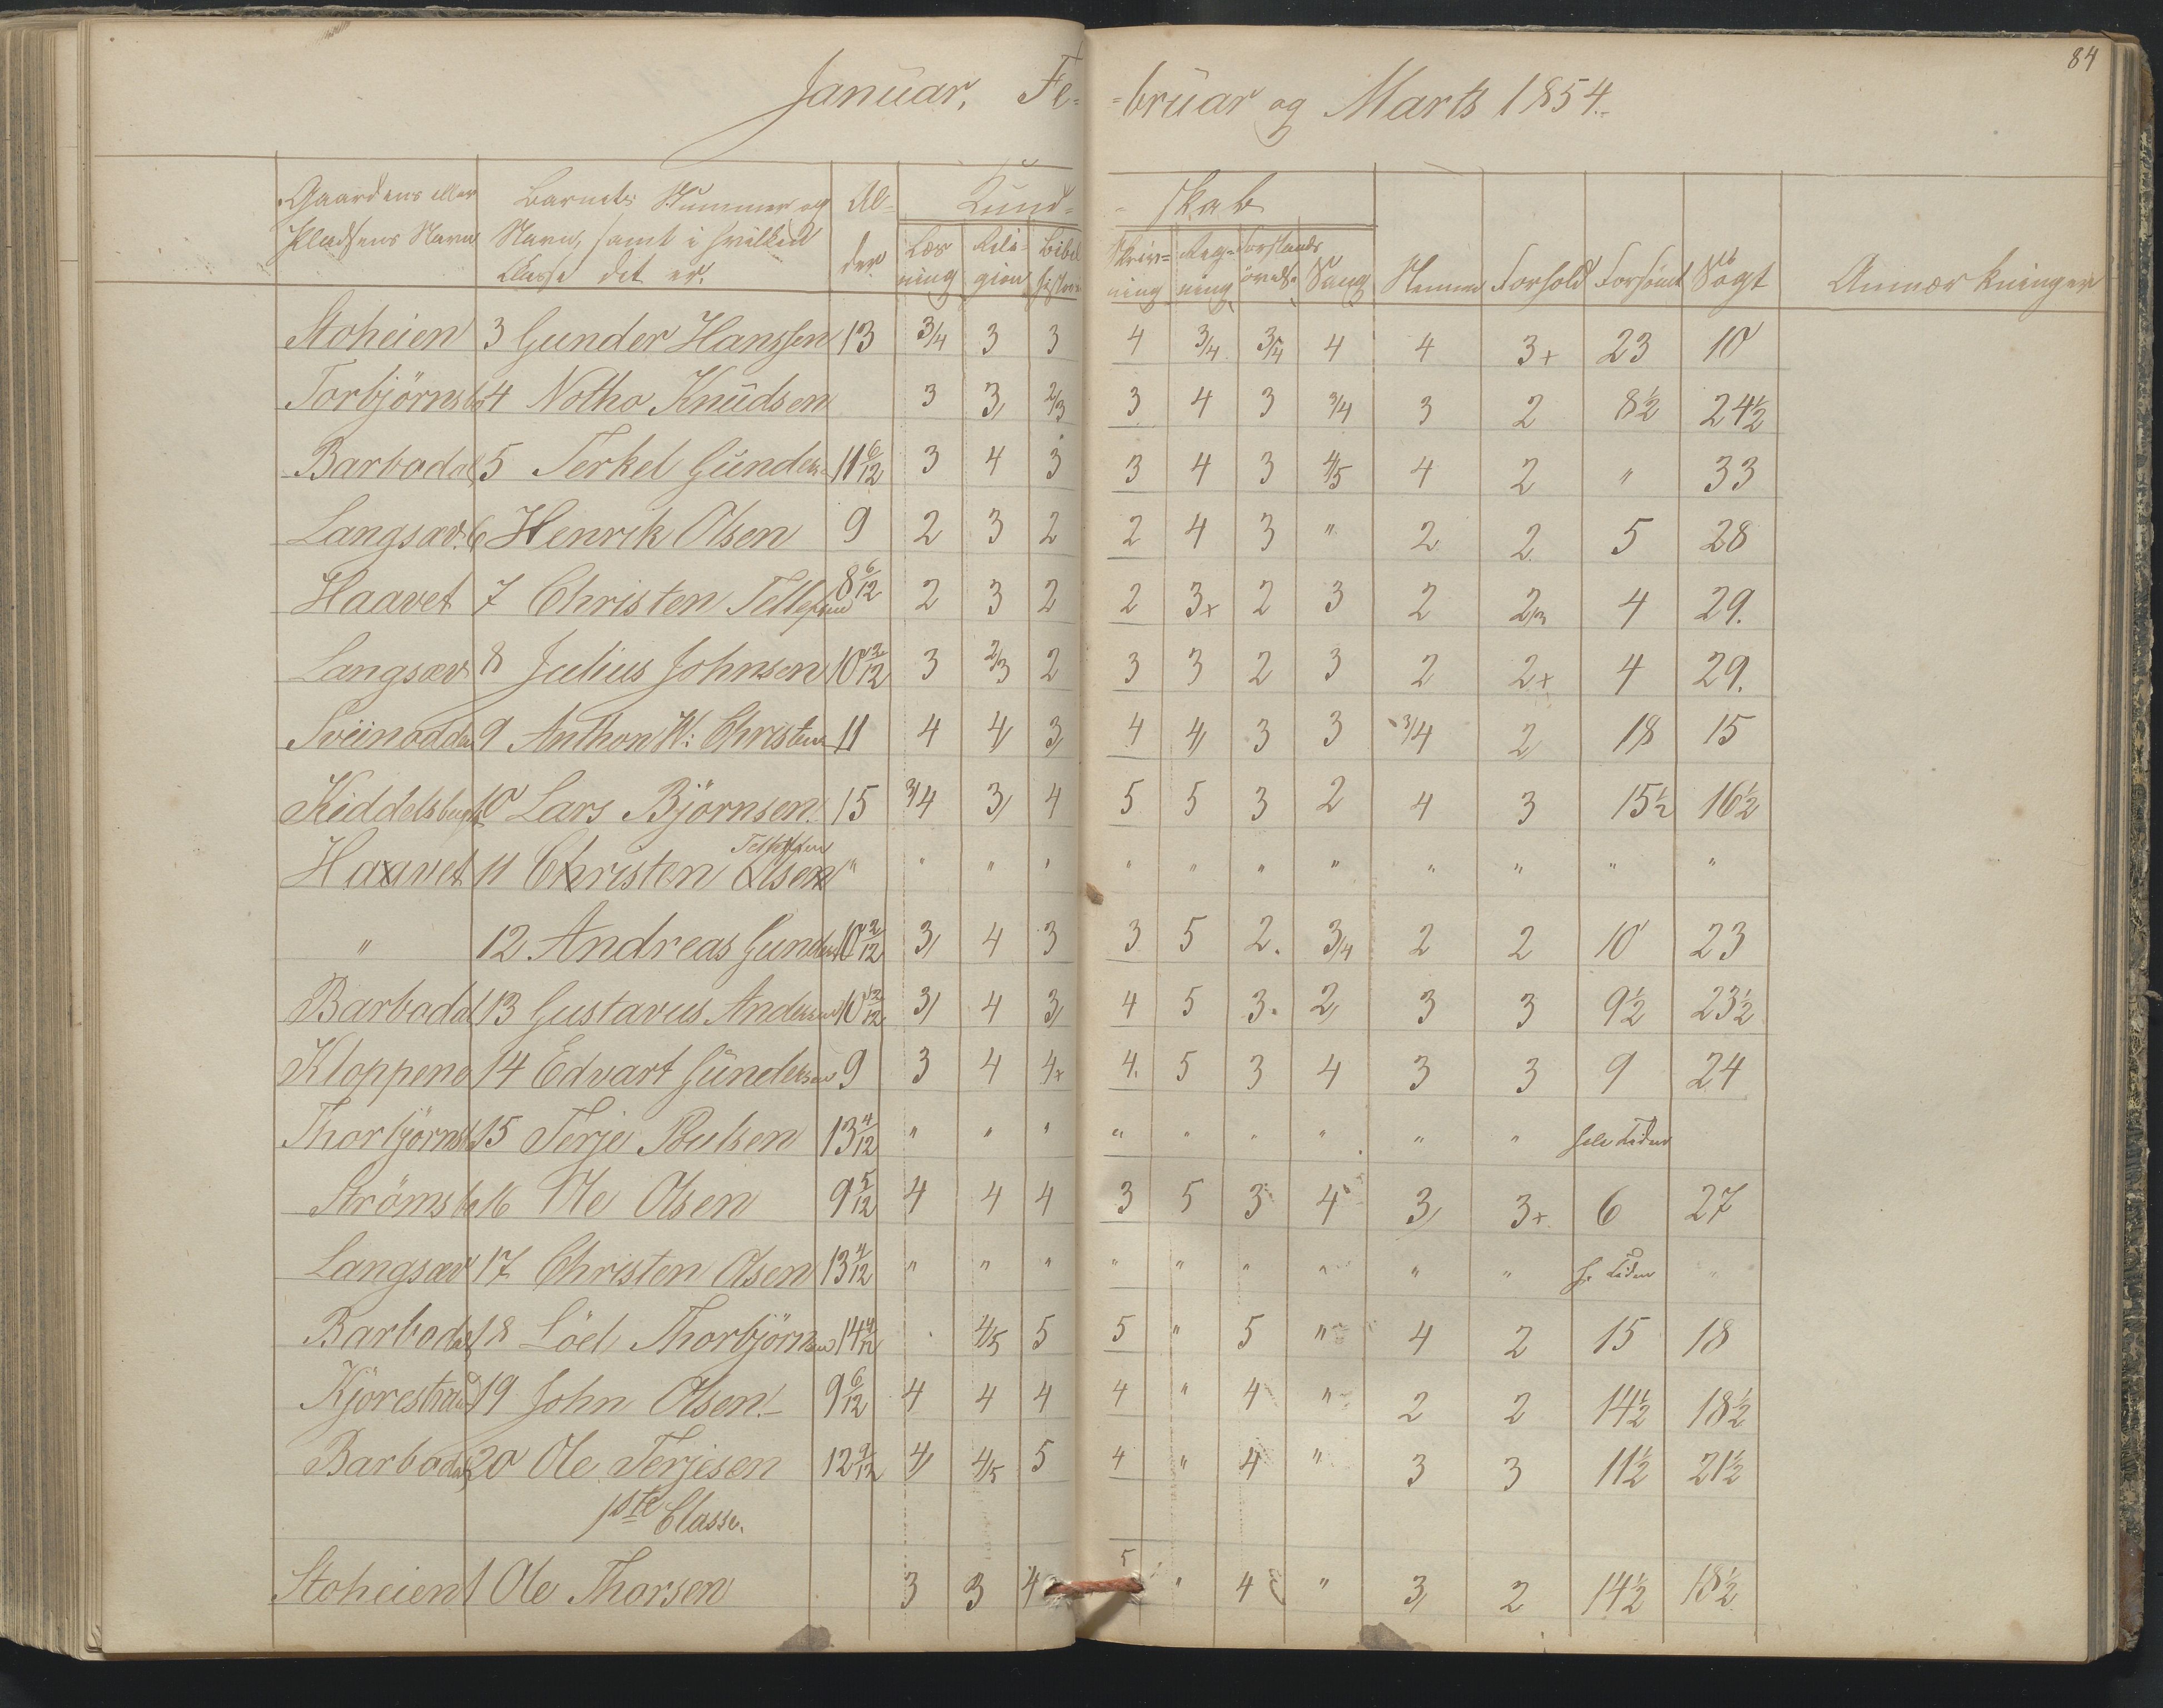 84
Januar, Fe- -bruar og Marts 1854.
Gaardens eller Pladsens Navn | Barnets Nummer og Navn, samt i hvilken Classe det er. | Al- der | Kund- - skab | Læs ning | Reli- gion | Bibel historie | Skriv- ning | Reg- ning | Forstands øvelse | Sang | Nemme | Forhold | Forsømt | Søgt | Anmærkninger
Stoheien 3 Gunder Hanssen 13 3/4 3 3 4 3/4 3/4 4 4 3+ 23 10
Torbjörnsbo 4 Notho Knudsen 3 3, 2/3 3 4 3 3/4 3 2 8½ 24½
Barbodal 5 Terkel Gunders- 11 6/12 3 4 3 3 4 3 4/5 4 2 " 33
Langsæv. 6 Henrik Olsen 9 2 3 2 2 4 3 " 2 2 5 28
Haavet 7 Christen Tellefsen 8 6/12 2 3 2 2 3+ 2 3 2 2/3 4 29.
Langsæv 8 Julius Johnsen 10 /12 3 2/3 2 3 3 2 3 2 2+ 4 29.
Sveinodden 9 Anthon W: Christens 11 4 4, 3, 4 4, 3 3 3/4 2 18 15
Kiddelsbugt 10 Lars Björnsen. 15 3/4 3, 4 5 5 3 2 4 3 15½ 16½
Haavet 11 Christen Olsen Tellefsen " " " " " " " " " " " "
" 12 Andreas Gunders 10 2/12 3, 4 3 3 5 2. 3/4 2 2 10 23
Barbodal 13 Gustavus Andersen 10 /12 3, 4 3, 4 5 3. 2, 3 3 9½ 23½
Kloppene 14 Edvart Gundersen 9 3 4 4+ 4. 5 3 4 3 3 9 24
Thorbjörnsb 15 Terje Poulsen 13 4/12 " " " " " " " " " hele Tiden
Strömsbo 16 Ole Olsen 9 5/12 4 4 4 3 5 3 4 3, 3+ 6 27
Langsæv 17 Christen Olsen 13 4/12 " " " " " " " " " h. Tiden "
Barbodal 18 Löel Thorbjörnsen 14 /12 . 4/5 5 5 " 5 " 4 2 15 18
Kjörestrand 19 John Olsen.- 9 6/12 4 4 4 4 " 4 " 2 2 14½ 18½
Barbodal 20 Ole Terjesen 12 9/12 4, 4/5 5 4 " 4 " 3 3 11½ 21½
1ste Classe.
Stoheien 1 Ole Thorsen 3 3 4 5 " 4 " 3, 2 14½ 18½